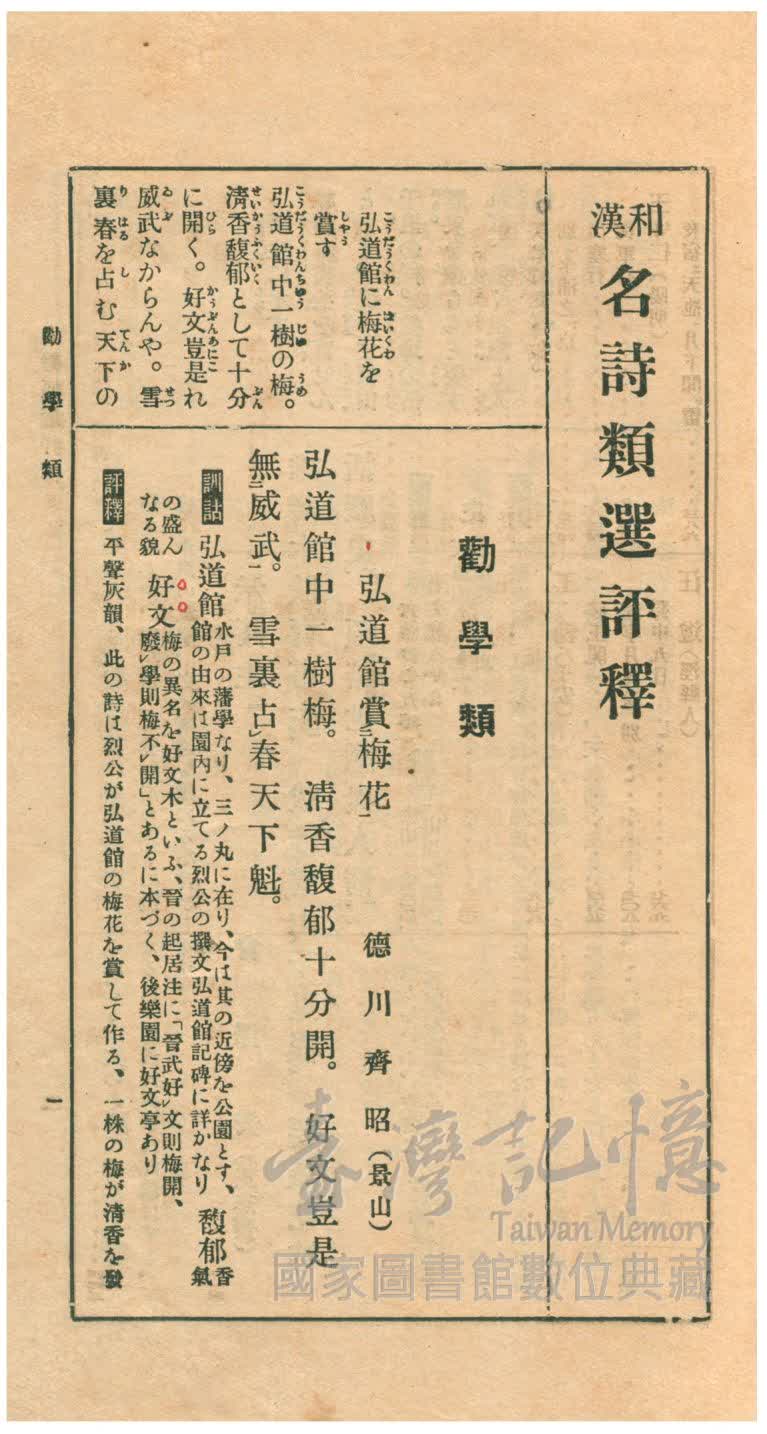 和漢
名詩類選評釋
勸學類
弘道館に梅花を
賞す
弘道館中一樹の梅。
淸香馥郁として十分
に開く。好文豈是れ
威武なからんや。雪
裏春を占む天下の
弘道館賞二梅花一 德川齊昭(景山)
弘道館中一樹梅。 淸香馥郁十分開。 好文豈是
無二威武一。 雪裏占レ春天下魁。
訓詁 弘道館 水戶の藩學なり、三ノ丸に在り、今は其の近傍を公園とす、
館の由來は園內に立てる烈公の撰文弘道館記碑に詳かなり 馥郁 香氣
の盛ん
なる貌 好文 梅の異名を好文木といふ、晉の起居注に「晉武好レ文則梅開、
廢レ學則梅不レ開」とあるに本づく、後樂園に好文亭あり
評釋 平聲灰韻、此の詩は烈公が弘道館の梅花を賞して作る、一株の梅が淸香を發
勸學類
一
臺灣記憶
Taiwan Memory
國家圖書館數位典藏